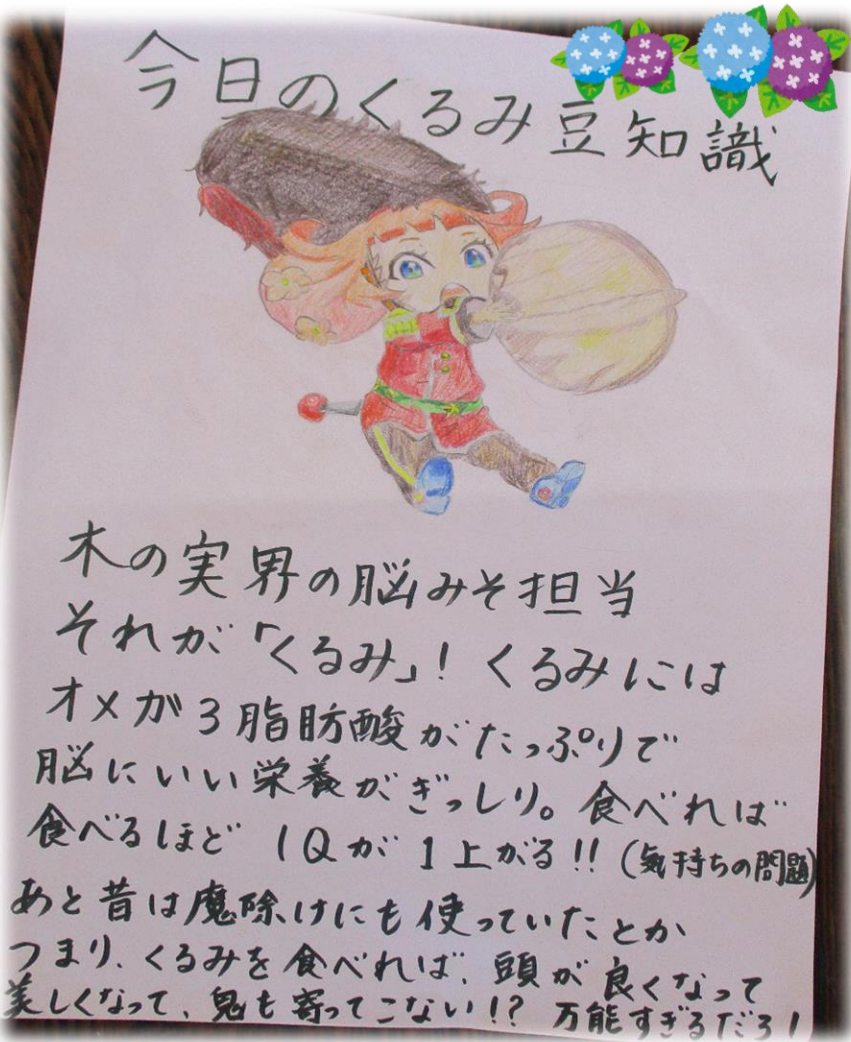 今日のくるみ豆知識
木の実界の脳みそ担当
それが「くるみ」！くるみには
オメガ3脂肪酸がたっぷりで
脳にいい栄養がぎっしり。食べれば
食べるほど IQが1上がる!!(気持ちの問題)
あと昔は魔除けにも使っていたとか
つまり、くるみを食べれば、頭が良くなって
美しくなって、鬼も寄ってこない!? 万能すぎるだろ!